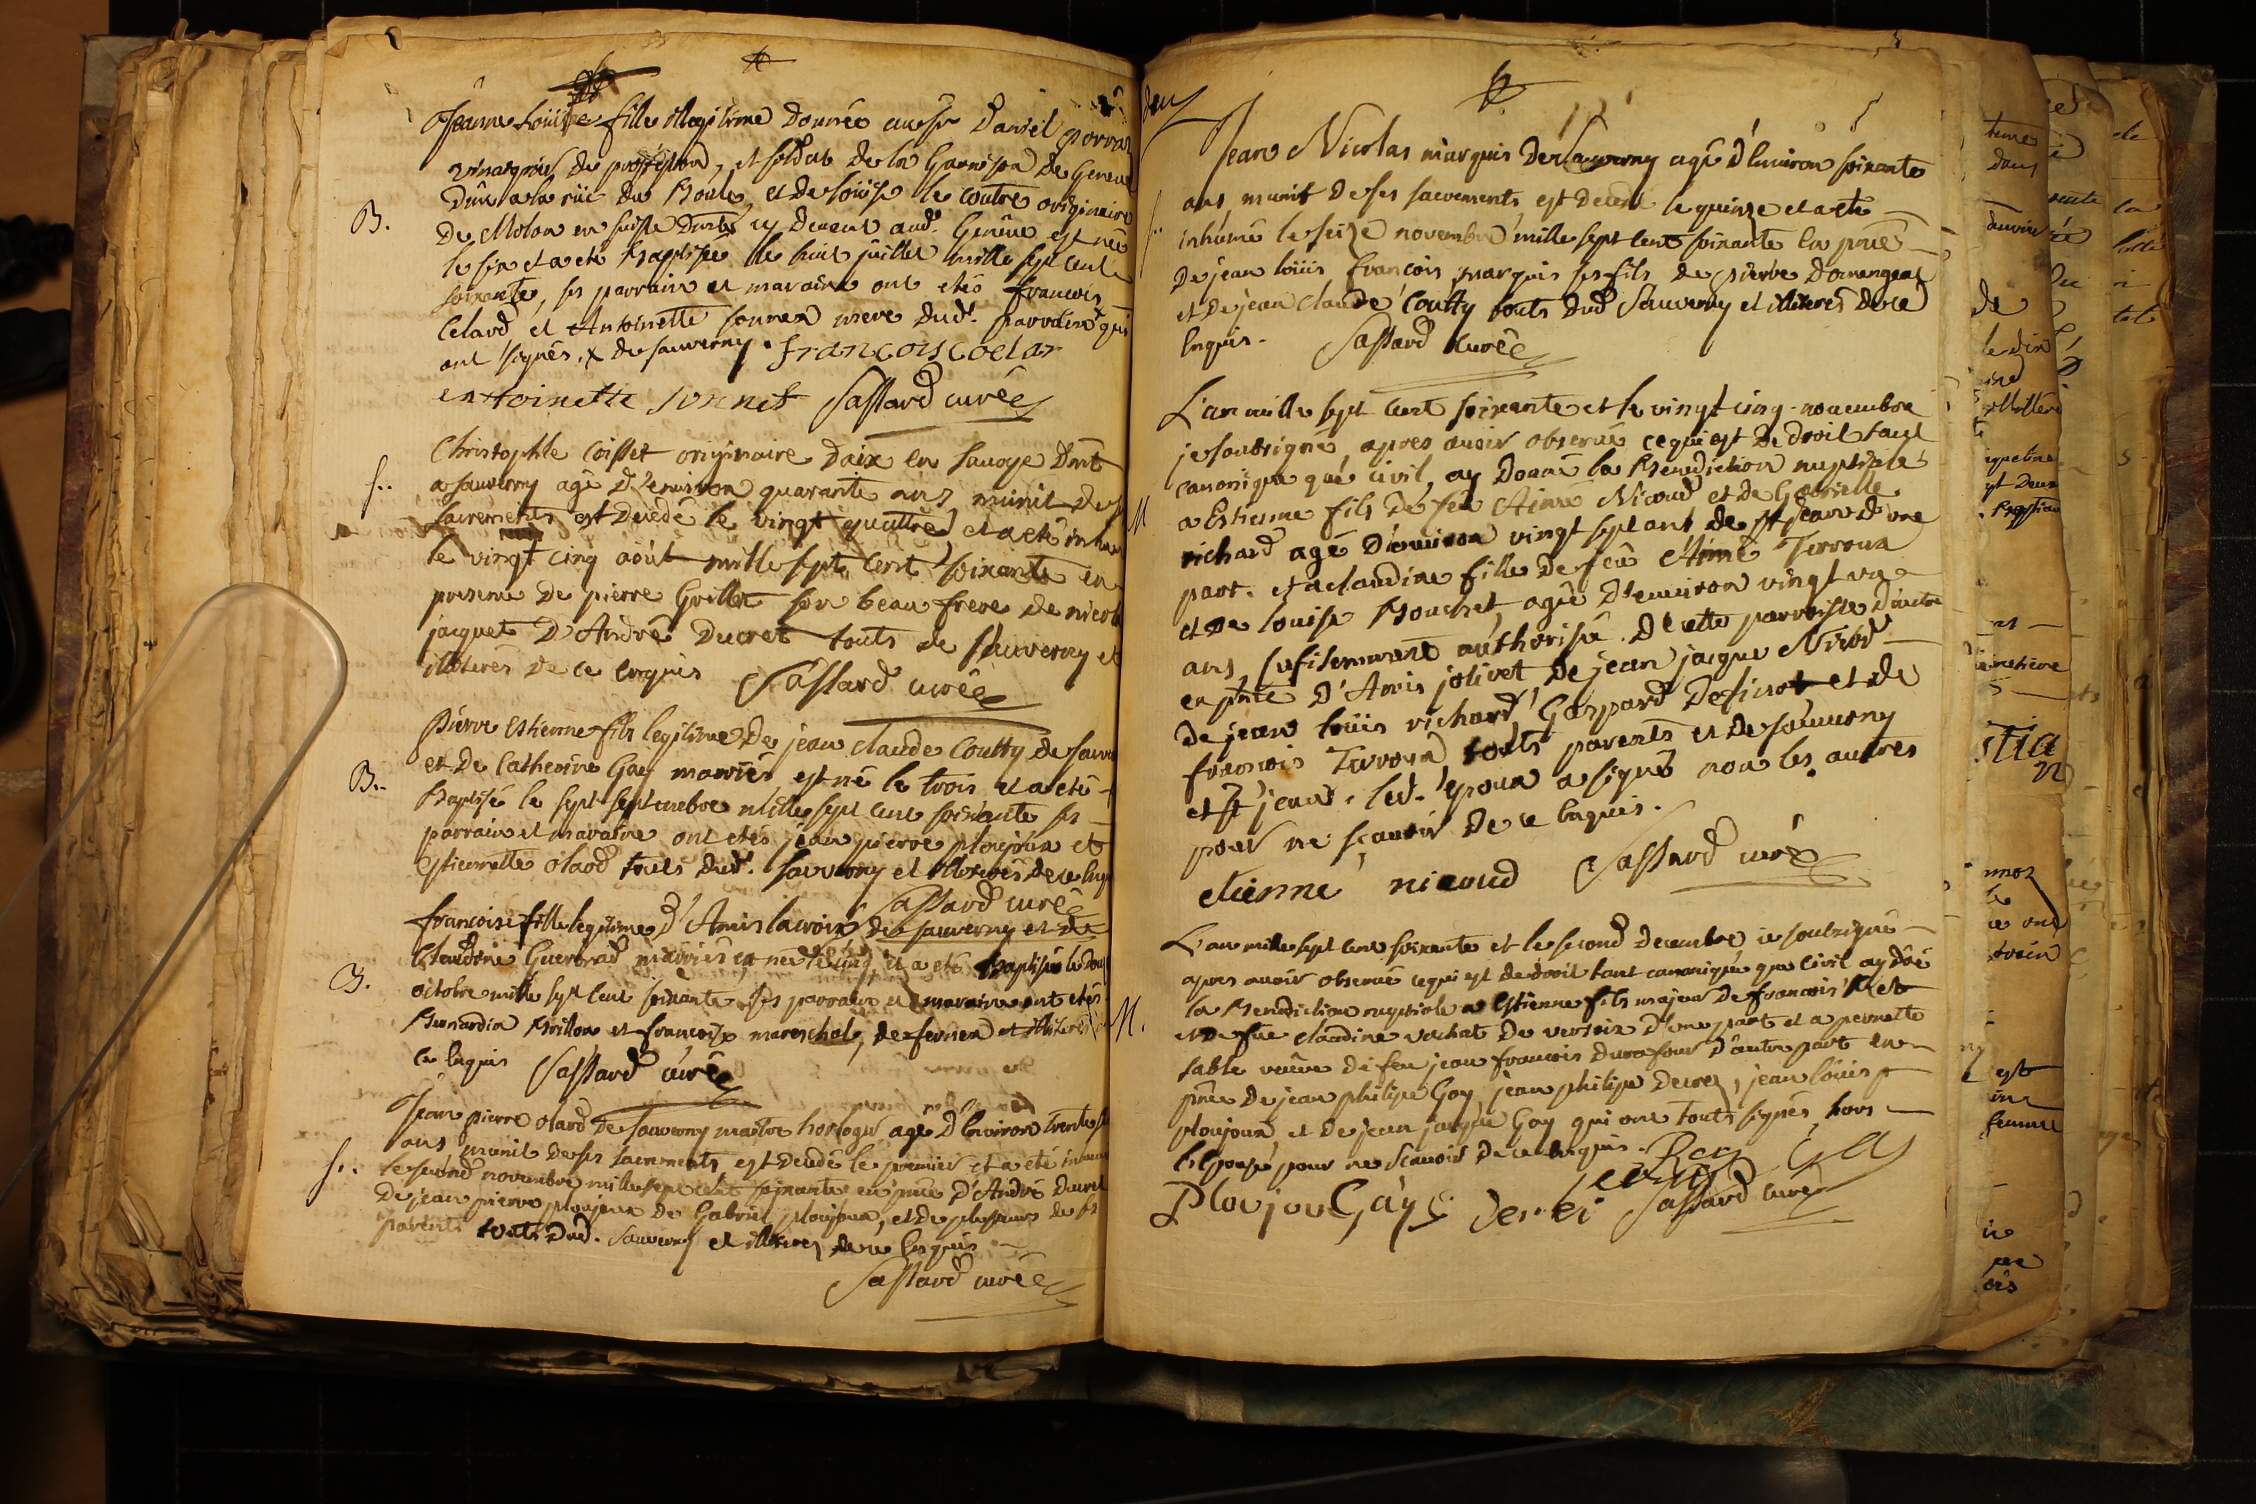 Jeanne Loüise fille illegitime donnée au Sr Daniel
vinaigrier de proffession, et soldat de la Garnison de Geneve
a la rüe du Boule, et de loüise le coutre originaire
B. de Molon en suisse cy devant aud. Genêve est née
le six et a eté Baptisée le huit juillet mille sept cent
soixante, ses parrain et maraine ont etés francois
Celard et Antoinette sonnex mere dud. parrain qui
ont signés. x de sauverny. francois coelar
entoinette sonnet Sassard curée
Christophle Coisset originaire daix en Savoye
S.. a sauverny agé d'environ quarante ans, munit de
sacrements est decedé le vingt quattre, et a eté
le vingt cinq août mille sept cent soixante en
presence de pierre Grillet son beau frere de
jacquet D'André Ducret touts de sauverny et
illiterés de ce enquis Sassard curée
Pierre Estienne fils legitime de jean claude Coutty de
et de Catherine Gay mariés est né le trois et a eté
B.. Baptisé le sept septembre mille sept cent soixante ses
parrain et maraine ont etés jean pierre ploujoux et
Estiennette olard touts dud. sauverny et illiterés de ce
Sassard curée
francoise fille legitime d'Amis lacroix de sauverny et de
Claudine mariés est née le cinq et a eté Baptisée le
B. octobre mille sept cent soixante ses parrain et maraine ont etés
Bernardin Brillon et francoise mareschal, de fernex et illiterés
ce enquis Sassard curée
Jean pierre olard de sauverny maitre horloger agé d'environ trente
ans munit de ses sacrements est decedé le premier et a eté
S.. le second novembre mille sept cent soixante en pnce D'André Ducret
de jean pierre ploujoux de Gabriel ploujoux, et de plusieurs de ses
parents touts dud. sauverny et illiterés de ce enquis
Sassard curée
Jean Nicolas marquis de Sauverny agé d'environ soixante
ans munit de ses sacrements est decedé le quinze et a eté
S.. inhumé le seize novembre mille sept cent soixante en pnce
de jean loüis francois marquis ses fils de pierre domangeat
et de jean claude Coutty touts dud Sauverny et illiterés de ce
enquis. Sassard curée
L'an mille sept cent soixante et le vingt cinq novembre
je soubsigné, apres avoir observé ce qui est de droit tant
canonique que civil, ay donné la Benediction nuptiale
M a Estienne fils de feu Aimé Nicoud et de Gabrielle
richard agé d'environ vingt sept ans de St jean d'une
part. et a claudine fille de feu Aimé Terroux
et de louise Bouchet, agée d'environ vingt un
ans, sufisemment authorisée de cette parroisse d'autre
en pnce D'Amis jolivet de jean jacque
de jean loüis richard, Gaspard et de
francois Terroux touts parents et de sauverny
et St jean. led. epoux a signé non les autres
pour ne scavoir de ce enquis.
etienne nicoud Sassard curé
L'an mille sept cent soixante et le second decembre je soubsigné
apres avoir observé ce qui est de droit tant canonique que civil ay doné
la Benediction nuptiale a Estienne fils majeur de francois
M. et de füe claudine vachat de versoix d'une part et a pernette
sable veuve de feu jean francois durafour d'autre part en
pnce de jean philipe Gay, jean philipe Decrez, jean loüis
ploujoux, et de jean jacque Gay qui ont touts signés, hors
l'Epouse pour ne scavoir de ce enquis.
Ploujou Gay Sassard curé